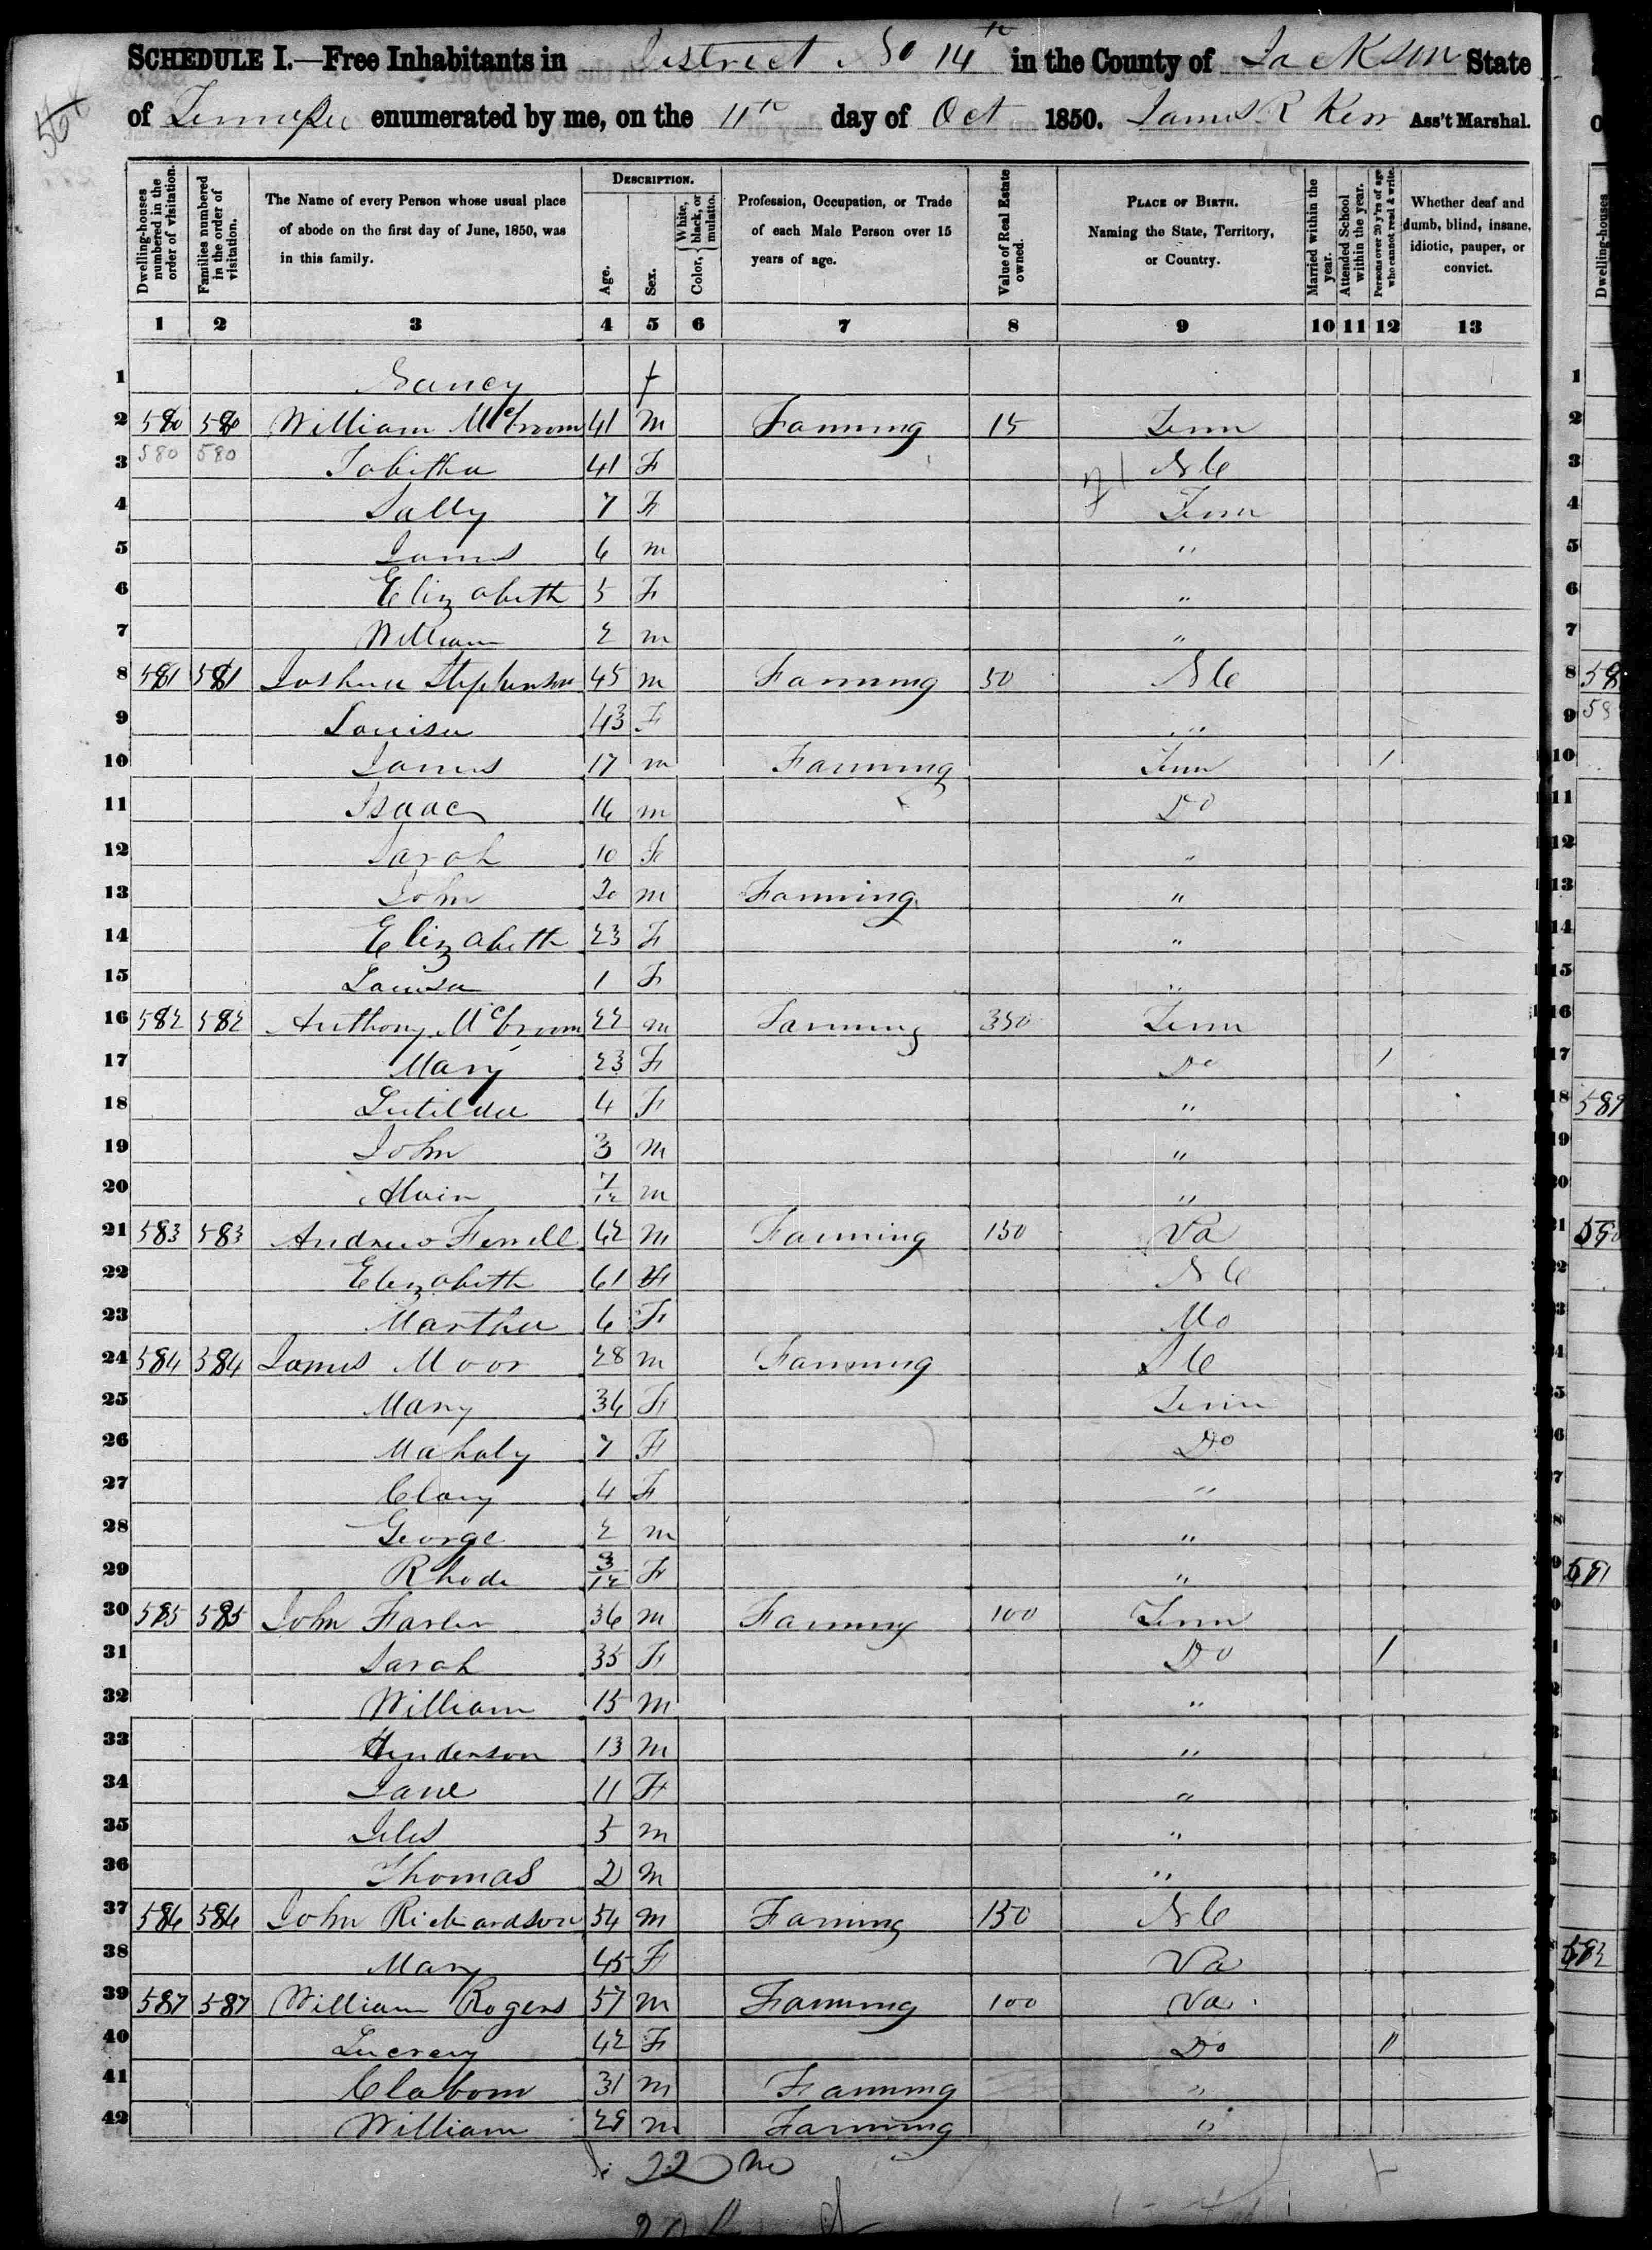 SCHEDULE I.—Free Inhabitants in District No 14th in the County of Jackson State
of Tennessee enumerated by me, on the 11th day of Oct 1850. James R Kerr Ass't Marshal.
Dwelling-houses numbered in the order of visitation.
Families numbered in the order of visitation.
The Name of every Person whose usual place of abode on the first day of June, 1850, was in this family.
DESCRIPTION.
Age.
Sex.
Color, { White, black, or mulatto.
Profession, Occupation, or Trade of each Male Person over 15 years of age.
Value of Real Estate owned.
PLACE OF BIRTH. Naming the State, Territory, or Country.
Married within the year.
Attended School within the year.
Persons over 20 y'rs of age who cannot read & write.
Whether deaf and dumb, blind, insane, idiotic, pauper, or convict.
1 2 3 4 5 6 7 8 9 10 11 12 13
1 Nancy f
2 580 580 William McCroom 41 m Farming 15 Tenn
3 580 580 Tabitha 41 F NC
4 Sally 7 F Tenn
5 James 6 m "
6 Elizabeth 5 F "
7 William 2 m "
8 581 581 Joshua Stephenson 45 m Farming 50 NC
9 Louisa 43 F "
10 James 17 m Farming Tenn 1
11 Isaac 16 m Do
12 Sarah 10 F "
13 John 20 m Farming "
14 Elizabeth 23 F "
15 Louisa 1 F "
16 582 582 Anthony McCroom 22 m Farming 350 Tenn
17 Mary 23 F Do 1
18 Lutilda 4 F "
19 John 3 m "
20 Alvin 7/12 m "
21 583 583 Andrew Ferrell 62 m Farming 150 Va
22 Elizabeth 61 F NC
23 Martha 6 F Mo
24 584 584 James Moor 28 m Farming SC
25 Mary 36 F Tenn
26 Mahaly 7 F Do
27 Clary 4 F "
28 George 2 m "
29 Rhoda 3/12 F "
30 585 585 John Farler 36 m Farming 100 Tenn
31 Sarah 35 F Do 1
32 William 15 m "
33 Henderson 13 m "
34 Jane 11 F "
35 5 m "
36 Thomas 2 m "
37 586 586 John Richardson 54 m Farming 150 NC
38 Mary 45 F Va
39 587 587 William Rogers 57 m Farming 100 Va
40 Lucrecy 42 F Do 1
41 Claborn 31 m Farming "
42 William 29 m Farming "
22 m